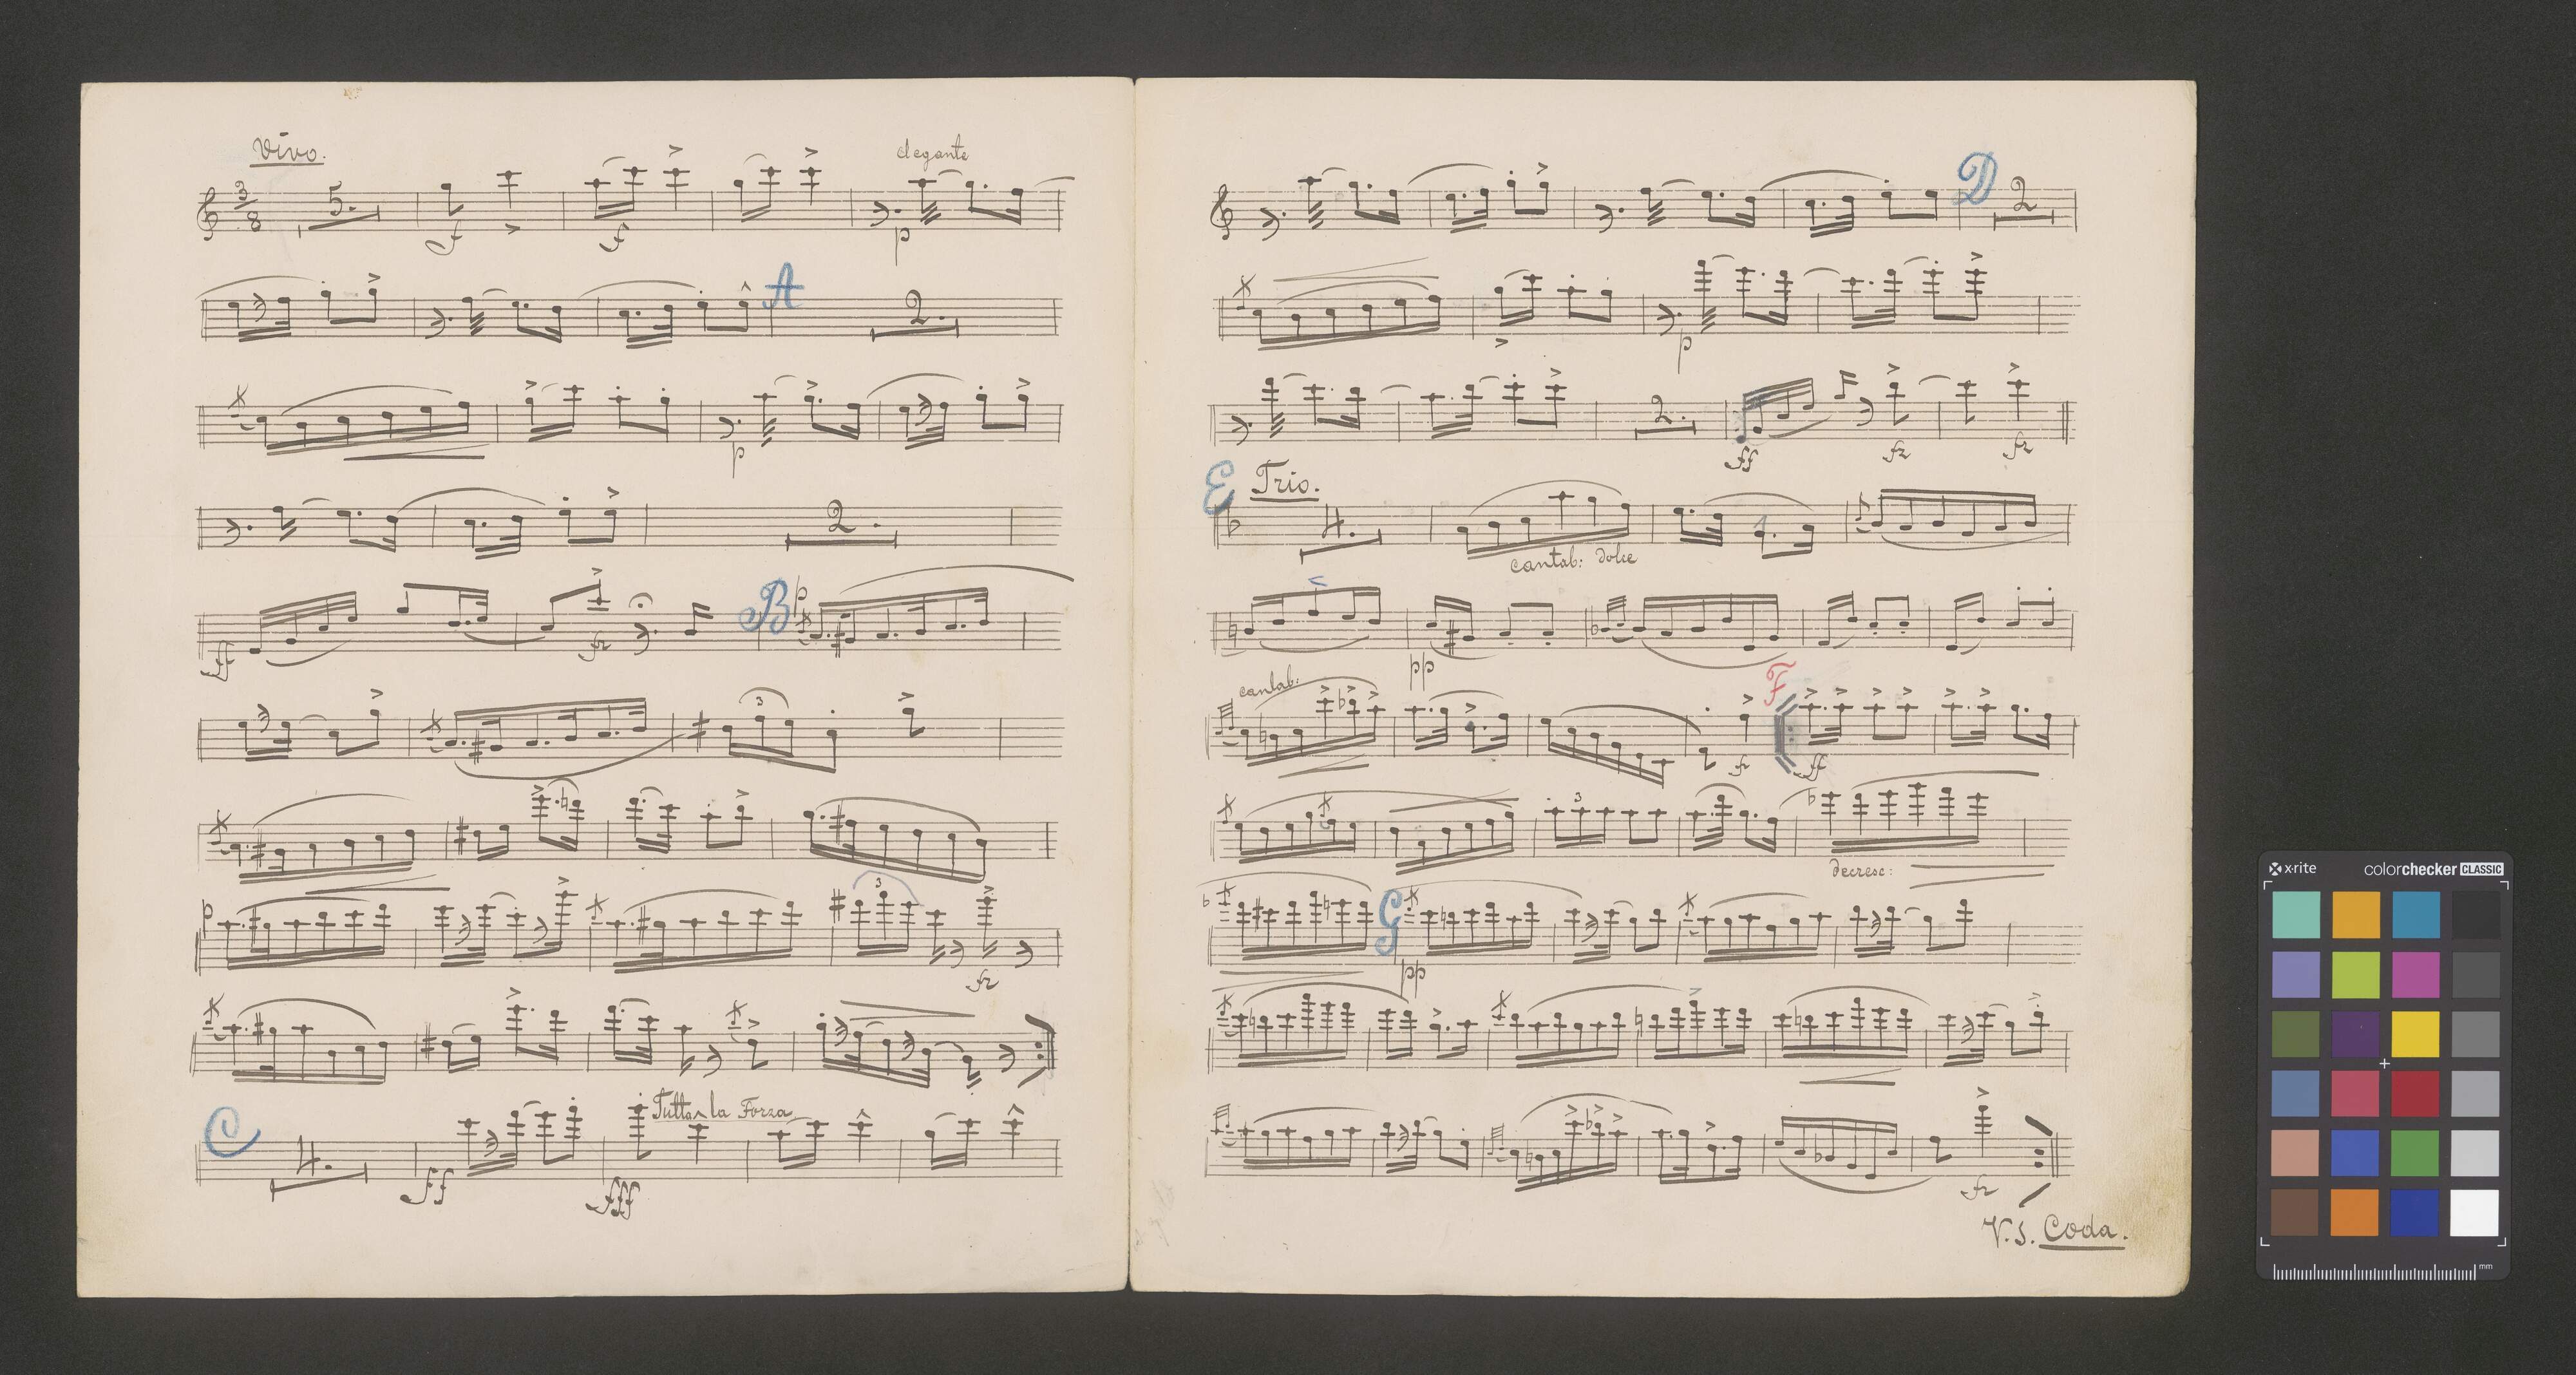 Vivo.
3/8 5. elegante
f f p
A 2.
p
2.
ff fz B p
3
p 3 fz
Tutta la Forza
C 4. ff fff
D 2
p
2. ff fz fz
E Trio.
4. cantab: dolce
pp
cantab: fz F ff
3
decresc:
G pp
fz
V.S. Coda.
x-rite colorchecker CLASSIC
mm